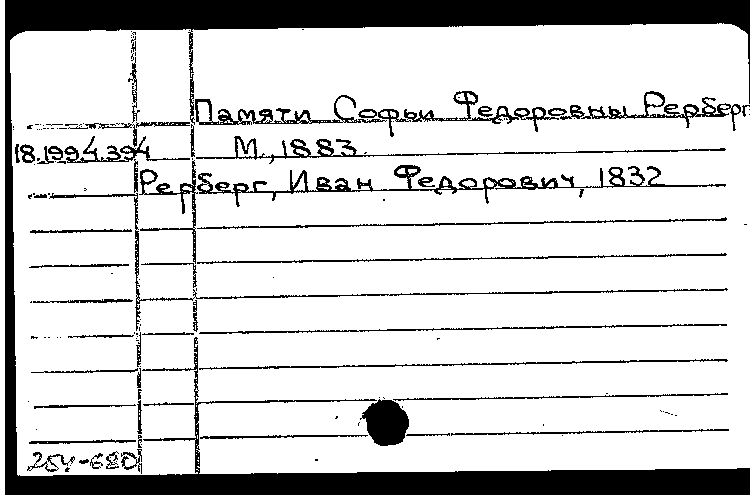 Памяти Софьи Федоровны Рерберг
18.199.4.394 М., 1883.
Рерберг, Иван Федорович, 1832
254-680